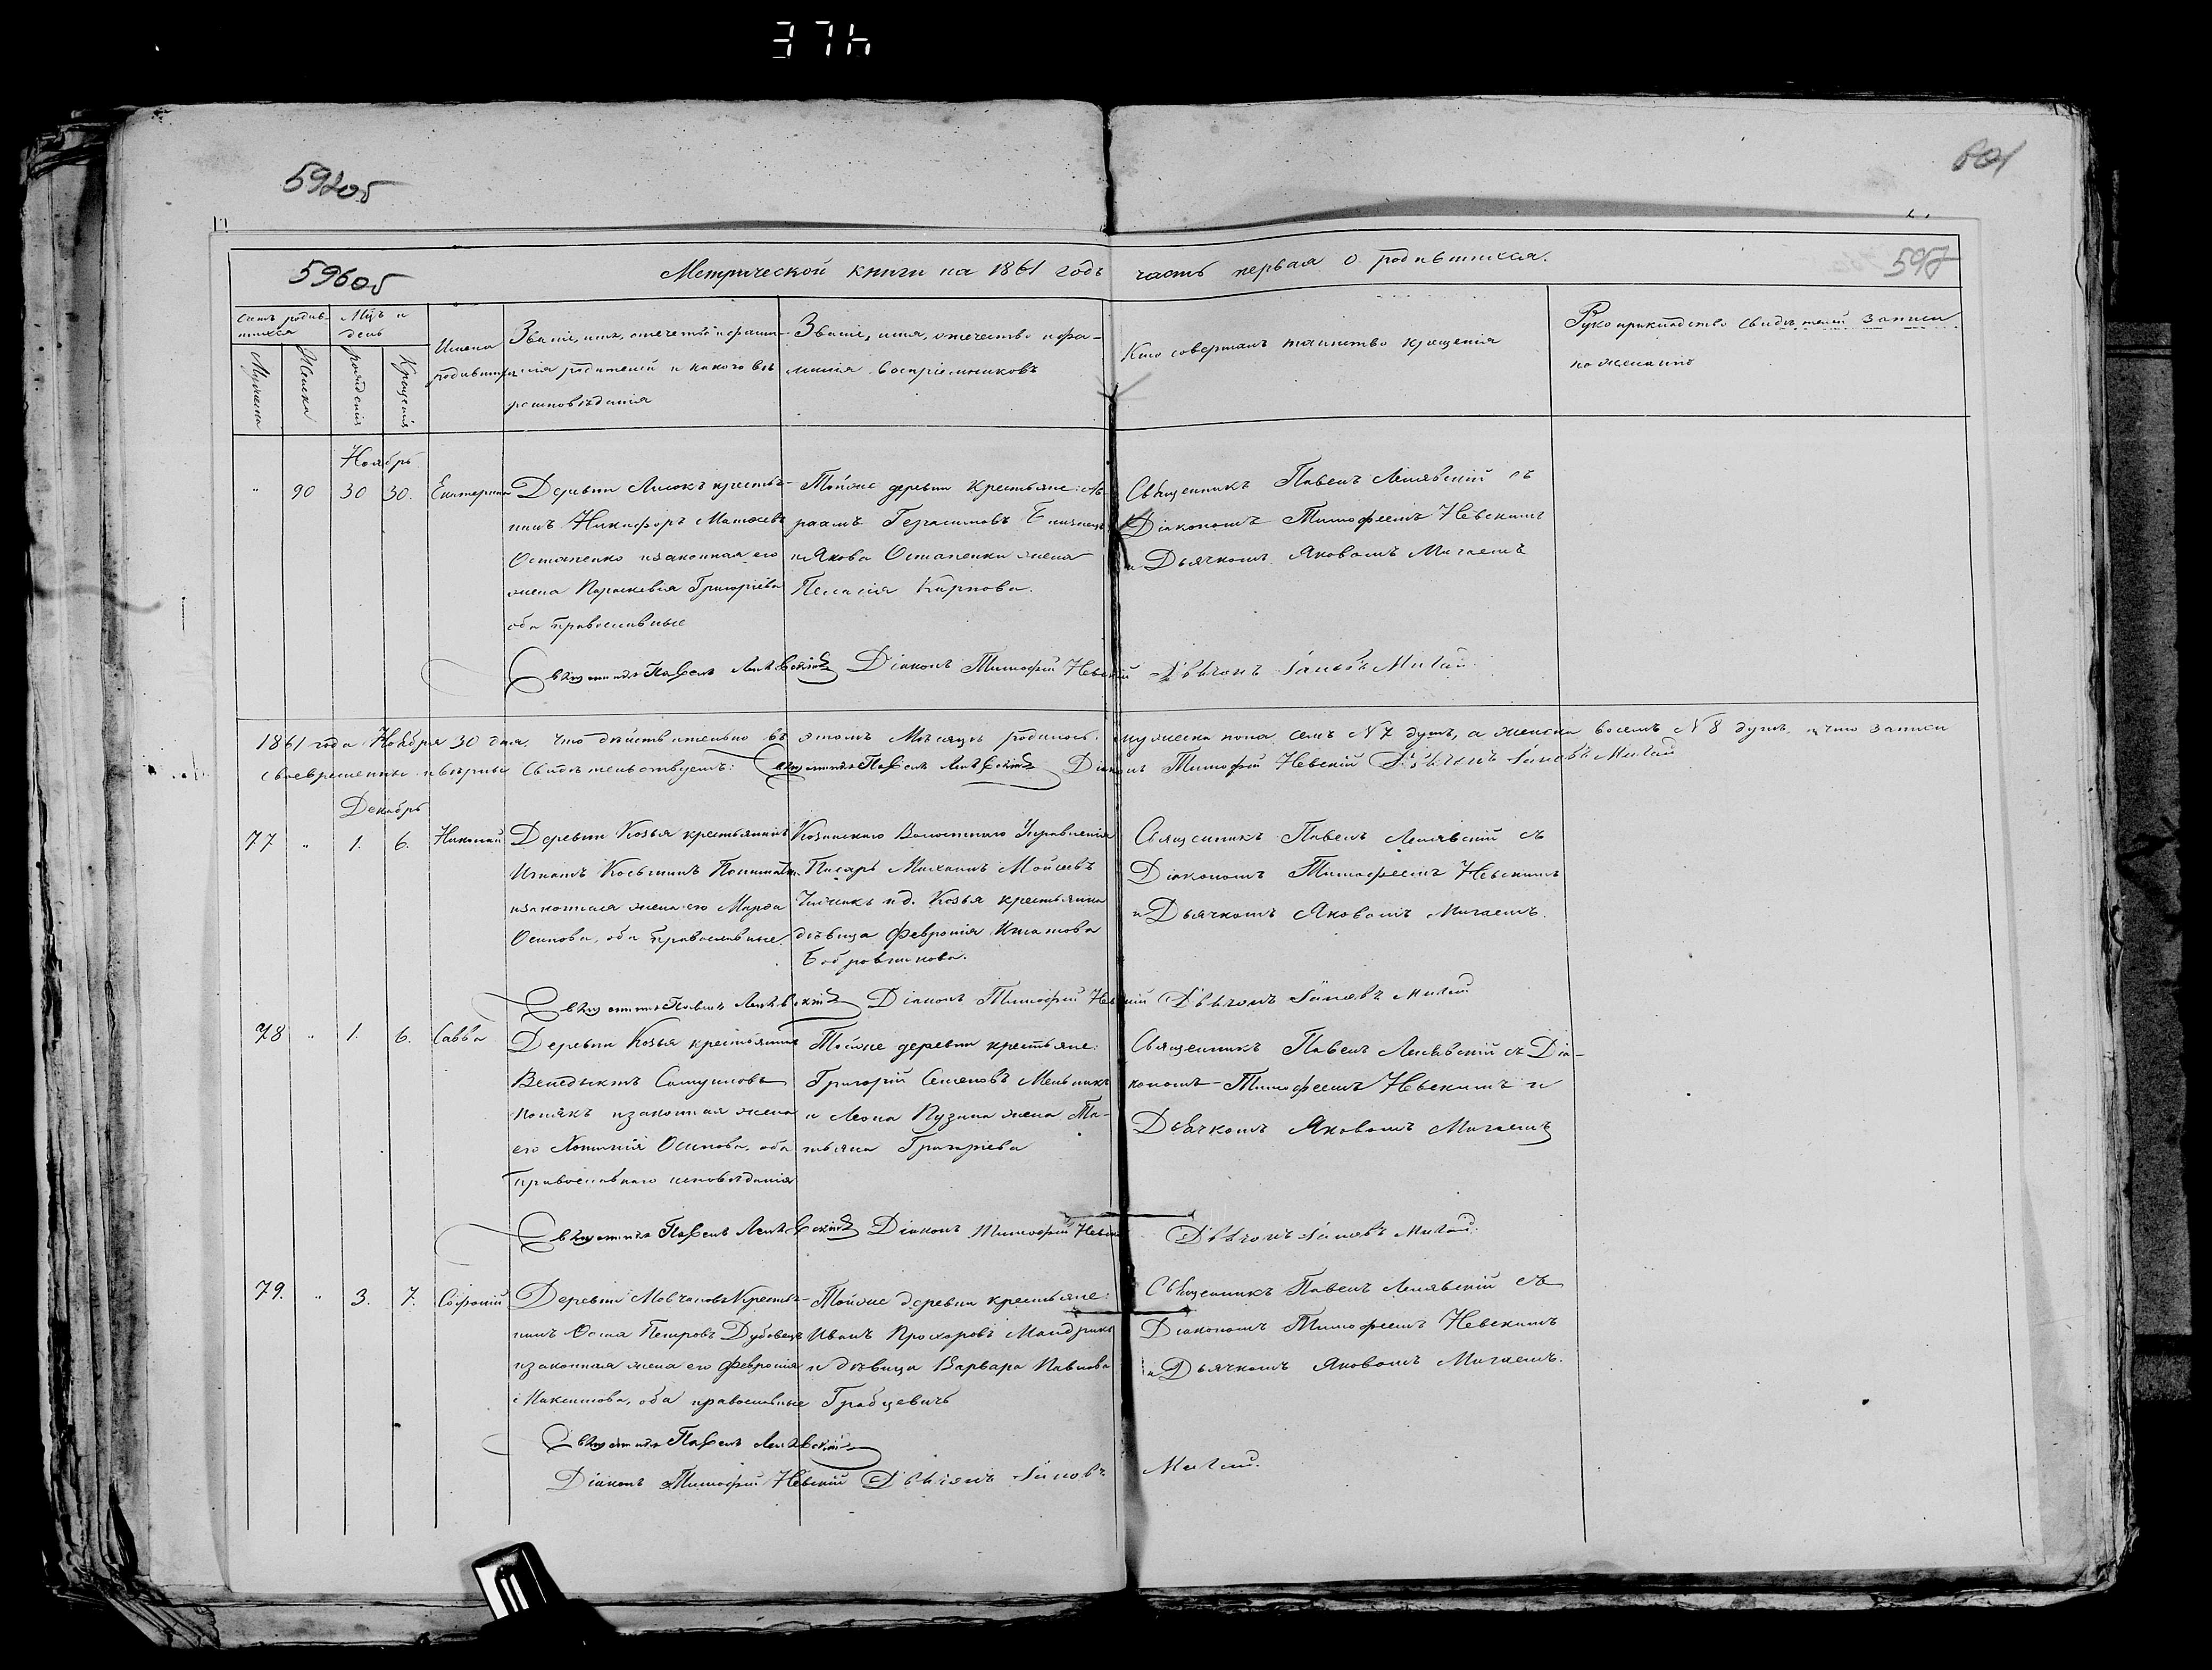 37h
592об
601
596об
Метрической книги на 1861 годъ часть первая о родившихся.
597
Счетъ родившихся
Мцъ и день
Мужеска
Женска
рожденія
Крещенія
Имена родившихся
Званіе, имя, отечество и фамилія родителей и какого вѣроисповѣданія
Званіе, имя, отечество и фамилія воспріемниковъ
Кто совершалъ таинство крещенія
Рукоприкладство свидѣтелей записи по желанію
Ноябрь
" 90 30 30. Екатерина
Деревни Лисокъ крестьянинъ Никифоръ
Остапенко и законная его
жена Параскевія Григоріева
оба православные
Тойже деревни крестьяне: Авраамъ Герасимовъ
и Якова Остапенки жена
Пелагія Карпова.
Священникъ Павелъ Лелявскій съ
Діакономъ Тимофеемъ Невскимъ
и Дьячкомъ Яковомъ Мигаемъ
Священникъ Павелъ Лелявскій Діаконъ Тимофей Невскій Дьячокъ Яковъ Мигай.
1861 года Ноября 30 дня. Что дѣйствительно въ этомъ Мѣсяцѣ родилось: мужеска пола семь №7 душъ, а женска восемь №8 душъ, и что записи
своевременны и вѣрны свидѣтельствуемъ: Священникъ Павелъ Лелявскій Діаконъ Тимофей Невскій Дьячокъ Яковъ Мигай
Декабрь
77 " 1. 6. Николай
Деревни Козья крестьянинъ
Игнатъ Козьминъ
и законная жена его Марѳа
Осипова, оба православные.
Козинскаго Волостнаго Управленія
Писарь Михаилъ Мойсеевъ
и д. Козья крестьянка
дѣвица Февронія Игнатова
Бобровникова.
Священникъ Павелъ Лелявскій съ
Діакономъ Тимофеемъ Невскимъ
и Дьячкомъ Яковомъ Мигаемъ.
Священникъ Павелъ Лелявскій Діаконъ Тимофей Невскій Дьячокъ Яковъ Мигай
78 " 1. 6. Савва
Деревни Козья крестьянинъ
Венедыктъ Самуиловъ
Полякъ и законная жена
его Осипова, оба
православнаго исповѣданія
Тойже деревни крестьяне:
Григорій Семеновъ Мельникъ
и Леона Пузана жена Татьяна Григоріева
Священникъ Павелъ Лелявскій съ Діакономъ Тимофеемъ Невскимъ и
Дьячкомъ Яковомъ Мигаемъ
Священникъ Павелъ Лелявскій Діаконъ Тимофей Невскій Дьячокъ Яковъ Мигай.
79. " 3. 7. Софроній
Деревни Мовчановъ Крестьянинъ Ѳома Петровъ Дубовецъ
и законная жена его Февронія
Максимова, оба православные
Тойже деревни крестьяне:
Иванъ Прохоровъ Мандрика
и дѣвица Варвара Павлова
Грабцевичъ
Священникъ Павелъ Лелявскій съ
Діакономъ Тимофеемъ Невскимъ
и Дьячкомъ Яковомъ Мигаемъ.
Священникъ Павелъ Лелявскій
Діаконъ Тимофей Невскій Дьячокъ Яковъ Мигай.